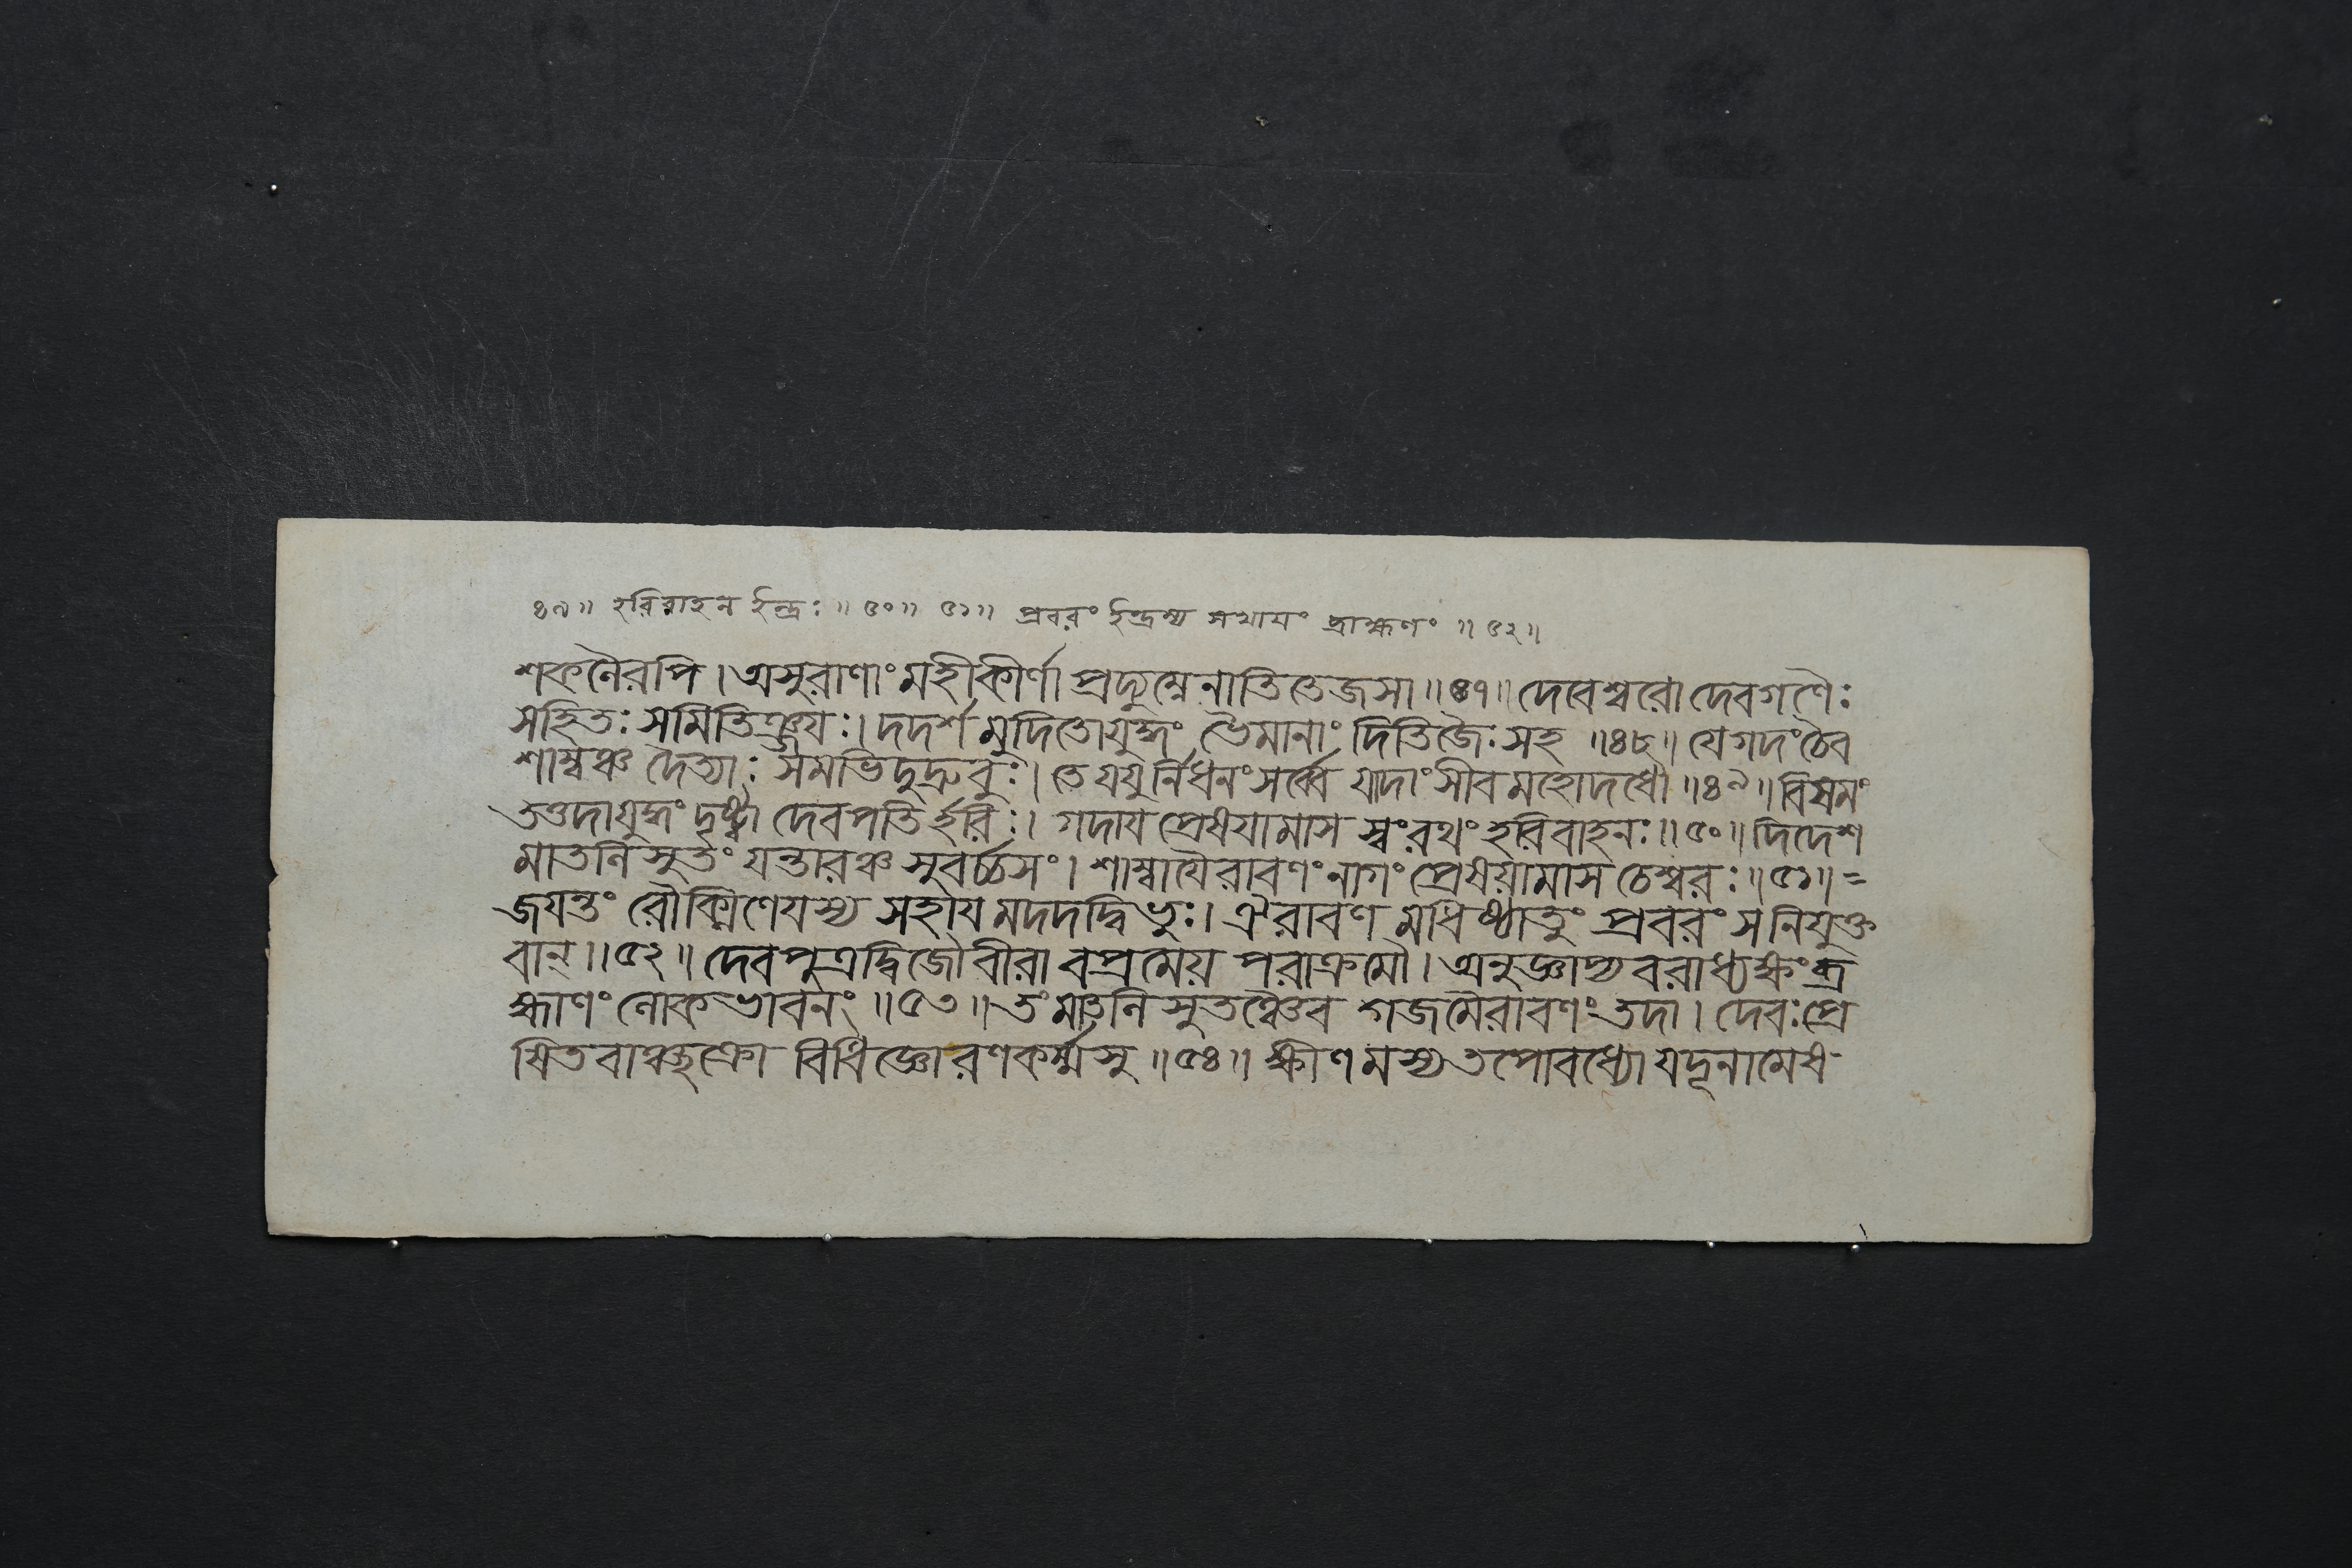 ৪৯॥ হরিবাহন ইন্দ্রঃ॥ ৫০॥ ৫১॥ প্রবরং ইন্দ্রস্য সখায়ং ব্রাহ্মণং ॥ ৫২॥
শকলৈরপি। অসুরাণাং মহীকীর্ণা প্রদ্যুম্নেনাতিতেজসা॥৪৭॥ দেবেশ্বরো দেবগণৈঃ
সহিতঃ সমিতিঞ্জয়ঃ। দদর্শ মুদিতো যুদ্ধং ভৈমানাং দিতিজৈঃ সহ ॥৪৮॥ যে গদং চৈব
শাম্বঞ্চ দৈত্যাঃ সমভিদুদ্রুবুঃ। তে যযুর্নিধনং সর্ব্বে যাদাংসীব মহোদধৌ ॥৪৯॥ বিষমং
তত্তদা যুদ্ধং দৃষ্ট্বা দেবপতির্হরিঃ। গদায় প্রেষয়ামাস স্বং রথং হরিবাহনঃ॥৫০॥ দিদেশ
মাতলিসুতং যন্তারঞ্চ সুবর্চ্চসং। শাম্বায়ৈরাবণং নাগং প্রেষয়ামাস চেশ্বরঃ॥৫১॥=
জয়ন্তং রৌক্মিণেয়স্য সহায়মদদদ্বিভুঃ। ঐরাবণমধিষ্ঠাতুং প্রবরং স নিযুক্ত
বান্॥৫২॥ দেবপুত্রদ্বিজৌ বীরাবপ্রমেয় পরাক্রমৌ। অনুজ্ঞাপ্য বরাধ্যক্ষং ব্র
হ্মাণং লোকভাবনং ॥৫৩॥ তং মাতলিসুতঞ্চৈব গজমৈরাবণং তদা। দেবঃ প্রে
ষিতবাঞ্ছক্রো বিধিজ্ঞো রণকর্ম্মসু॥৫৪॥ ক্ষীণমস্য তপো বধ্যো যদূনামেষ-